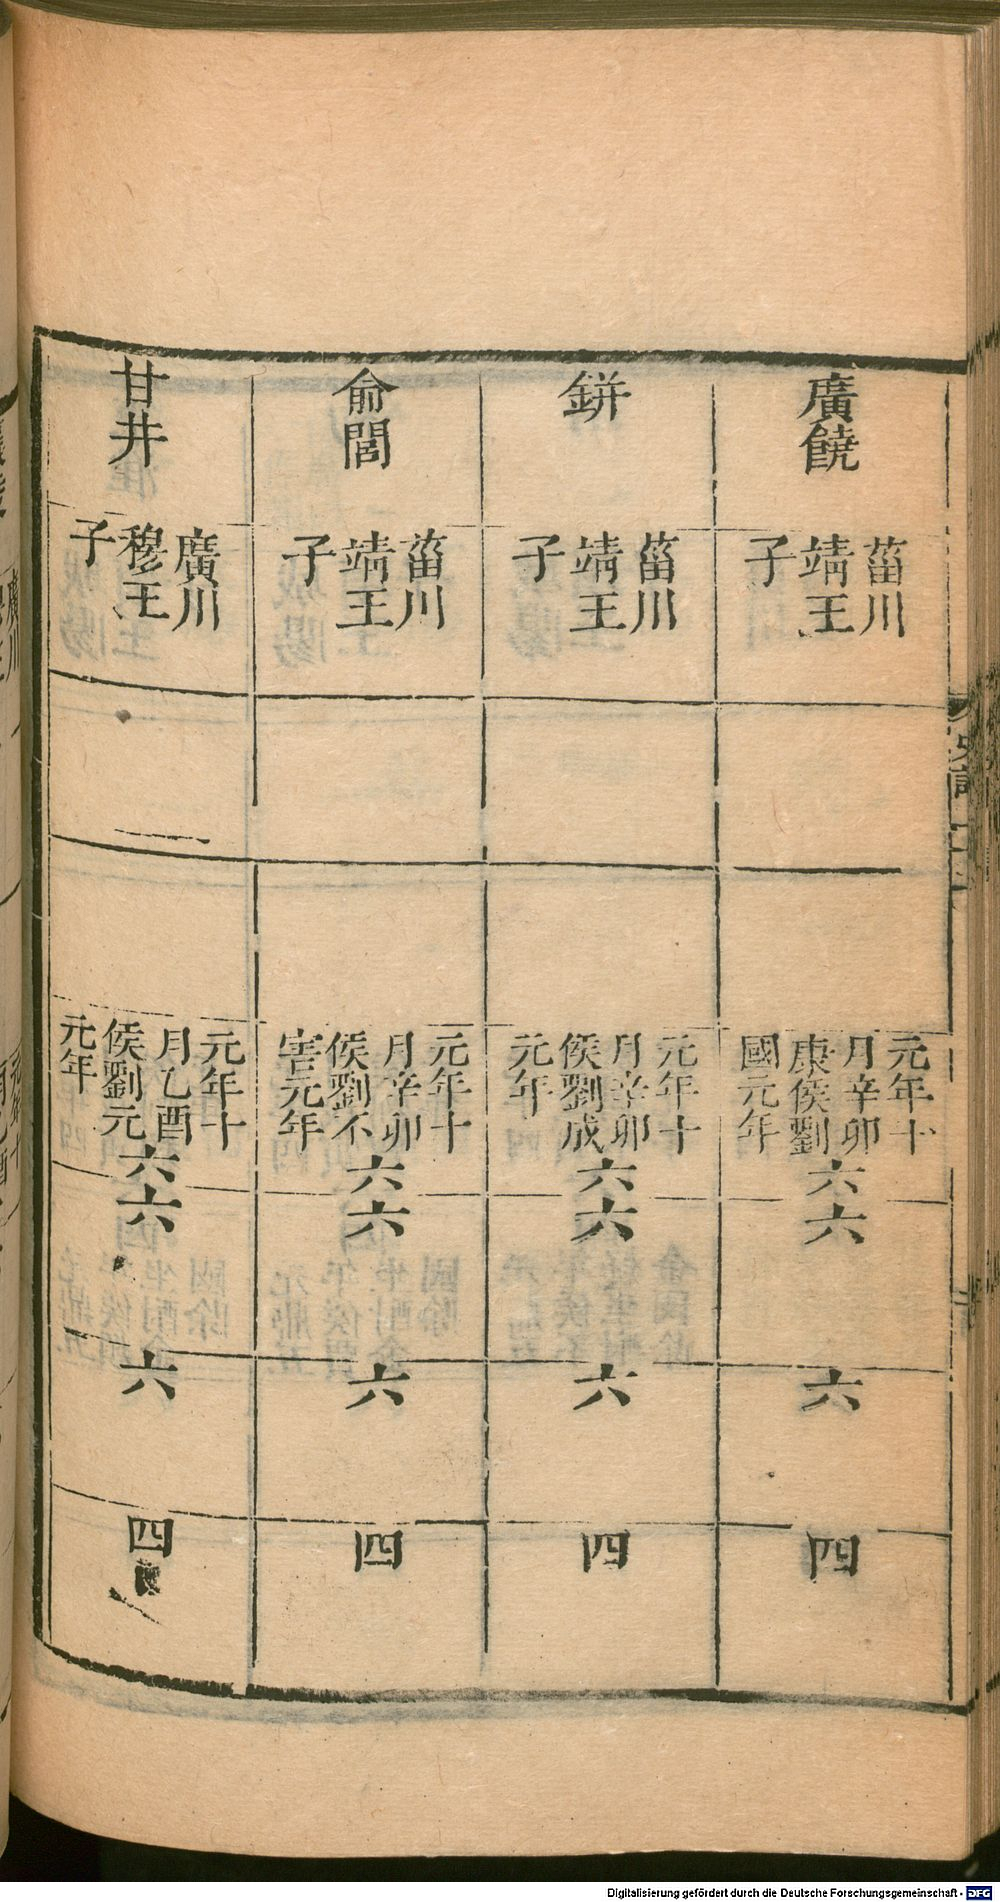 廣饒
菑川
靖王
子
元年十
月辛卯
康侯劉
國元年
六
六
六
四
鉼
菑川
靖王
子
元年十
月辛卯
侯劉成
元年
六
六
六
四
俞閭
菑川
靖王
子
元年十
月辛卯
侯劉不
害元年
六
六
六
四
甘井
廣川
穆王
子
元年十
月乙酉
侯劉元
元年
六
六
六
四
Digitalisierung gefördert durch die Deutsche Forschungsgemeinschaft - DFG